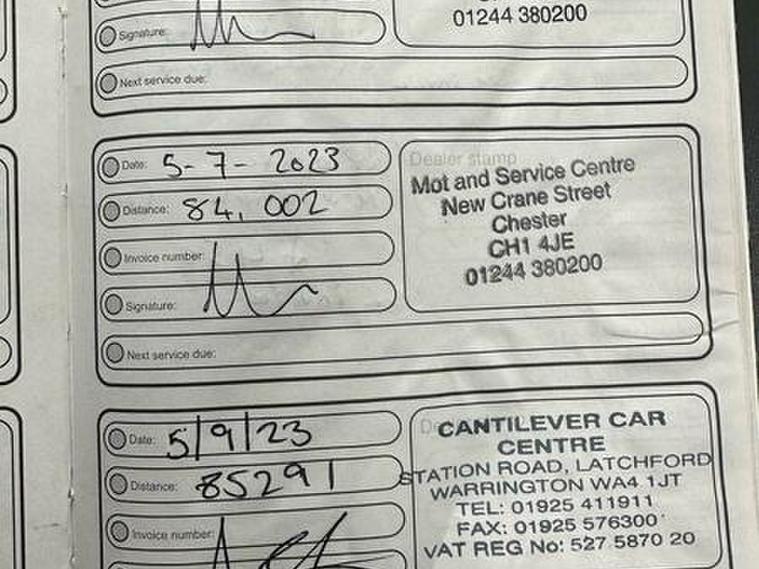 01244 380200
Signature:
Next service due:
Date: 5-7-2023
Distance: 84,002
Invoice number:
Signature:
Next service due:
Dealer stamp
Mot and Service Centre
New Crane Street
Chester
CH1 4JE
01244 380200
Date: 5/9/23
Distance: 85291
Invoice number:
CANTILEVER CAR
CENTRE
STATION ROAD, LATCHFORD
WARRINGTON WA4 1JT
TEL: 01925 411911
FAX: 01925 576300
VAT REG No: 527 5870 20